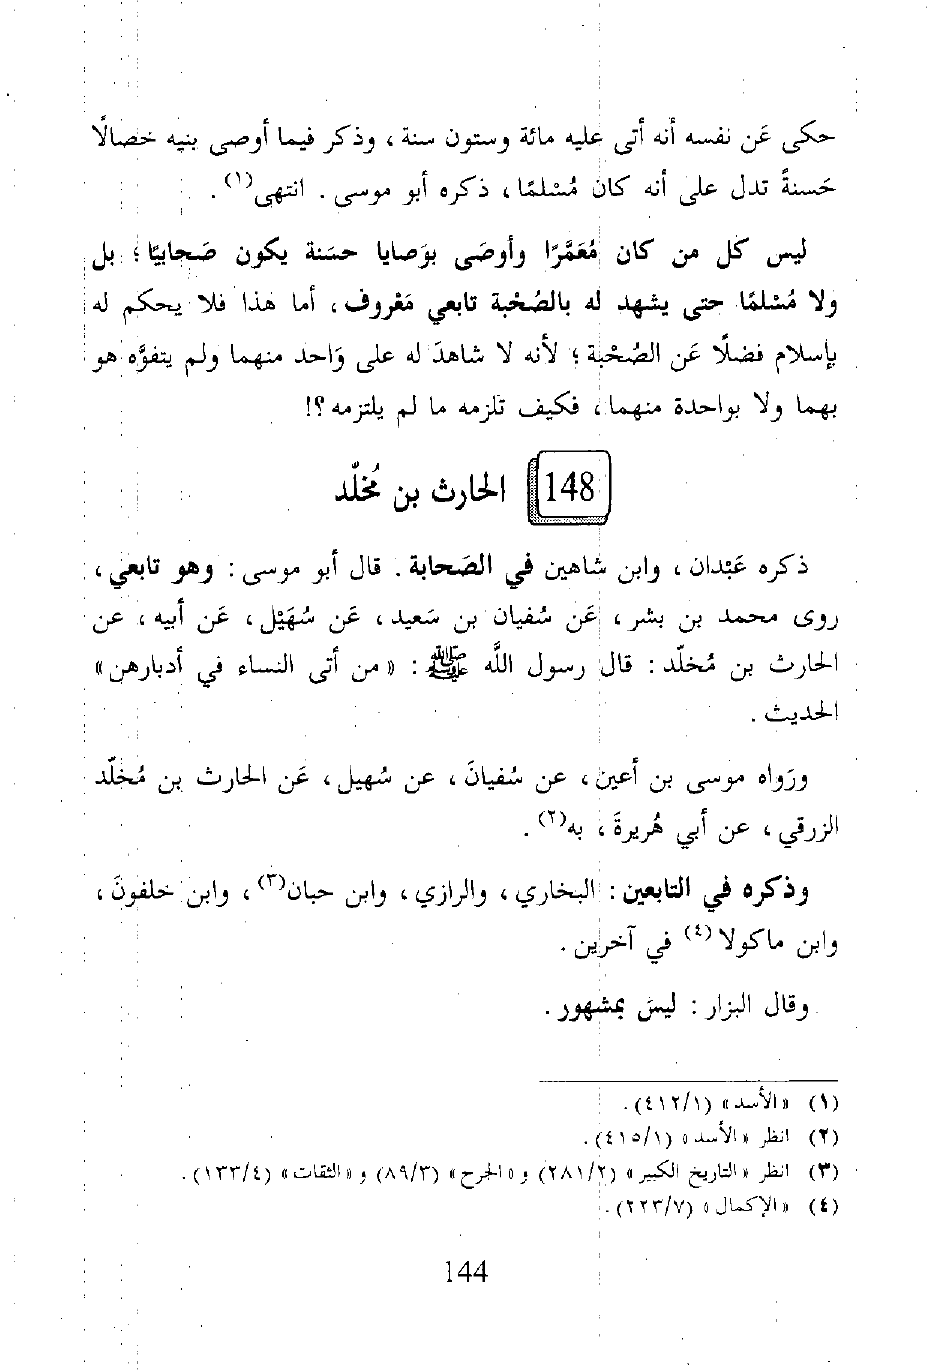 حكى عَن نفسه أنه أتى عليه مائة وستون سنة ، وذكر فيما أوصى بنيه خصالًا
حَسنةً تدل على أنه كان مُسْلمًا ، ذكره أبو موسى . انتهى(١) .
ليس كل من كان مُعَمَّرًا وأوصَى بوَصايا حسَنة يكون صَحابيًا ؛ بل
ولا مُسْلمًا حتى يشهد له بالصُحْبة تابعي مَعْروف ، أما هذا فلا يحكم له
بإسلام فضلًا عَن الصُحْبة ؛ لأنه لا شاهدَ له على وَاحد منهما ولم يتفوَّه هو
بهما ولا بواحدة منهما ، فكيف تلزمه ما لم يلتزمه ؟!
148 الحارث بن مُخلّد
ذكره عَبْدان ، وابن شاهين في الصَحابة . قال أبو موسى : وهو تابعي ،
روى محمد بن بشر ، عَن سُفيان بن سَعيد ، عَن سُهَيْل ، عَن أبيه ، عن
الحارث بن مُخلّد : قال رسول اللَّه ﷺ : « من أتى النساء في أدبارهن »
الحديث .
ورَواه موسى بن أعين ، عن سُفيانَ ، عن سُهيل ، عَن الحارث بن مُخلّد
الزرقي ، عن أبي هُريرةَ ، به(٢) .
وذكره في التابعين : البخاري ، والرازي ، وابن حبان(٣) ، وابن خلفونَ ،
وابن ماكولا(٤) في آخرين .
وقال البزار : ليسَ بمشهور .
(١) « الأسد » (٤١٢/١) .
(٢) انظر « الأسد » (٤١٥/١) .
(٣) انظر « التاريخ الكبير » (٢٨١/٢) و « الجرح » (٨٩/٣) و « الثقات » (١٣٣/٤) .
(٤) « الإكمال » (٢٢٣/٧) .
144